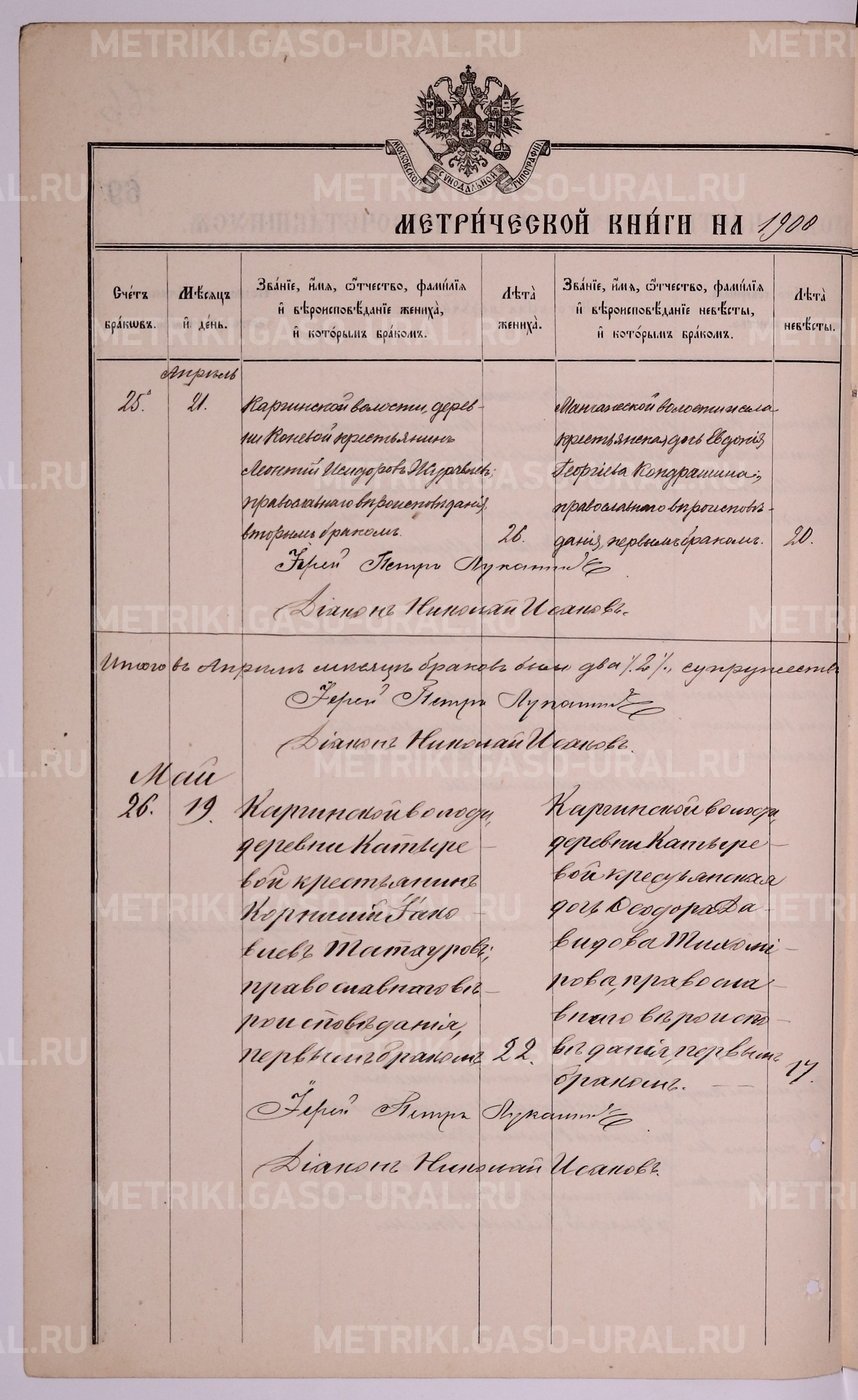 METRIKI.GASO-URAL.RU
МОСКОВСКОЙ СѴНОДАЛЬНОЙ ТИПОГРАФІИ
МЕТРИ́ЧЕСКОЙ КНИ́ГИ НА 1908
Сче́тъ бра́кѡвъ.
Мѣ́сяцъ и҆ де́нь.
Зва́нїе, и҆́мѧ, ѻ҆́тчество, фами́лїѧ и҆ вѣроисповѣ́данїе жениха̀, и҆ кото́рымъ бра́комъ.
Лѣта̀ жениха̀.
Зва́нїе, и҆́мѧ, ѻ҆́тчество, фами́лїѧ и҆ вѣроисповѣ́данїе невѣ́сты, и҆ кото́рымъ бра́комъ.
Лѣта̀ невѣ́сты.
Апрѣль
25.
21.
Каргинской волости, дерев-
ни Коневой крестьянинъ
Леонтій Исидоровъ Журавлевъ;
православнаго вѣроисповѣданія,
вторымъ бракомъ.
26.
волости села
крестьянская дочь Евдокія
Георгіева Кондрашина;
православнаго вѣроисповѣ-
данія, первымъ бракомъ.
20.
Іерей Петръ
Діаконъ Николай Исаковъ.
Итого въ Апрѣлѣ мѣсяцѣ браковъ было два /.2/., супружествъ
Іерей Петръ
Діаконъ Николай Исаковъ.
Май
26.
19.
Каргинской волости,
деревни Катыре-
вой крестьянинъ
Корнилій Іако-
влевъ Татауровъ;
православнаго вѣ-
роисповѣданія,
первымъ бракомъ
22.
Каргинской волости,
деревни Катыре-
вой крестьянская
дочь Ѳеодора Да-
видова Тихоми-
рова, правосла-
внаго вѣроиспо-
вѣданія, первымъ
бракомъ.
17.
Іерей Петръ
Діаконъ Николай Исаковъ.